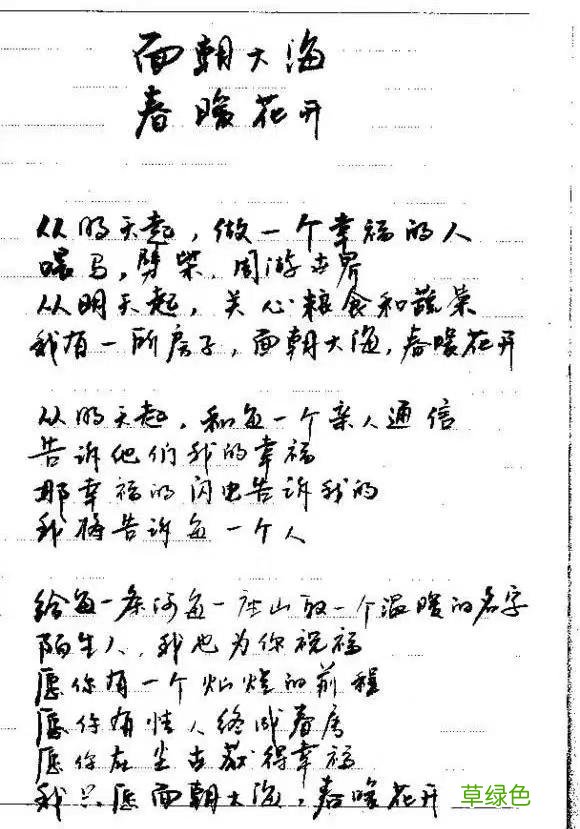 面朝大海
春暖花开
从明天起，做一个幸福的人
喂马，劈柴，周游世界
从明天起，关心粮食和蔬菜
我有一所房子，面朝大海，春暖花开
从明天起，和每一个亲人通信
告诉他们我的幸福
那幸福的闪电告诉我的
我将告诉每一个人
给每一条河每一座山取一个温暖的名字
陌生人，我也为你祝福
愿你有一个灿烂的前程
愿你有情人终成眷属
愿你在尘世获得幸福
我只愿面朝大海，春暖花开
草绿色